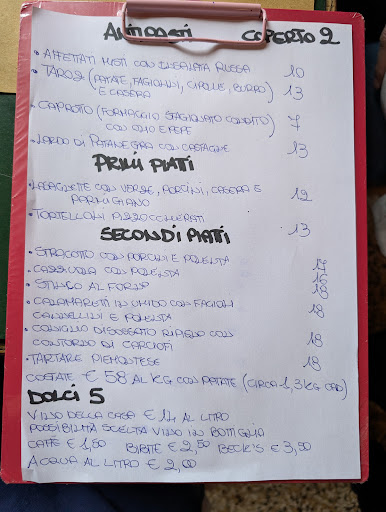 ANTIPASTI COPERTO 2
• AFFETTATI MISTI CON INSALATA RUSSA 10
• TAROZ (PATATE, FAGIOLINI, CIPOLLE, BURRO) 13
E CASERA
• CAPROTTO (FORMAGGIO STAGIONATO CONDITO) 7
CON OLIO E PEPE
• LARDO DI PATANEGRA CON CASTAGNE 13
PRIMI PIATTI
• LASAGNETTE CON VERZE, PORCINI, CASERA E 12
PARMIGIANO
• TORTELLONI PIZZOCCHERATI 13
SECONDI PIATTI
• STRACOTTO CON PORCINI E POLENTA
• CASSUOLA CON POLENTA
• STINCO AL FORNO 18
• CALAMARETTI IN UMIDO CON FAGIOLI 18
CANNELLINI E POLENTA
• CONIGLIO DISOSSATO RIPIENO CON 18
CONTORNO DI CARCIOFI
• TARTARE PIEMONTESE 18
COSTATE € 58 AL KG CON PATATE (CIRCA 1,3KG CAD)
DOLCI 5
VINO DELLA CASA € 14 AL LITRO
POSSIBILITÀ SCELTA VINO IN BOTTIGLIA
CAFFÈ € 1,50 BIBITE € 2,50 BECK'S € 3,50
ACQUA AL LITRO € 2,00